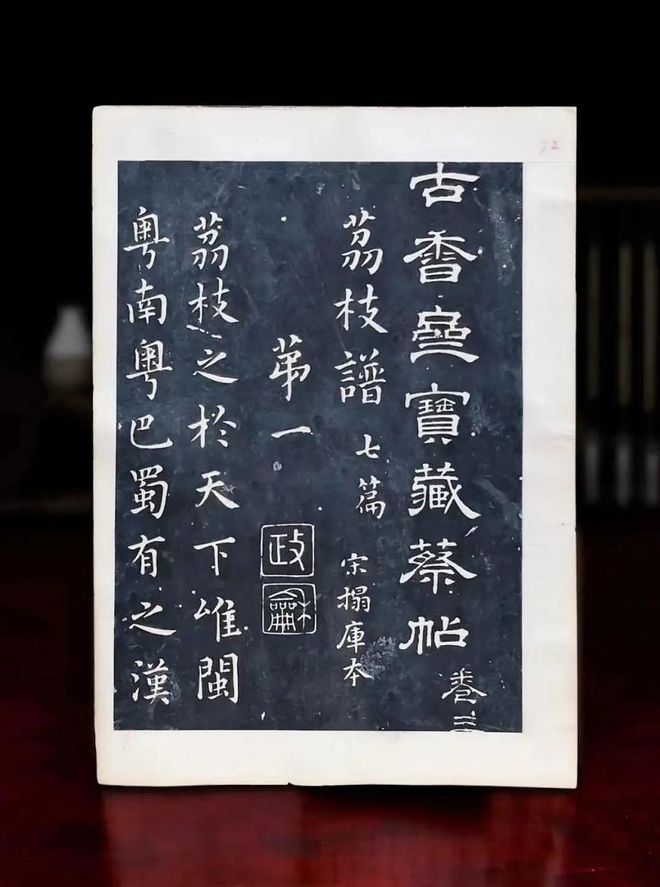 古香齋寶藏蔡帖 卷三
荔枝譜 七篇 宋搨庫本
第一
政龢
荔枝之於天下唯閩
粤南粤巴蜀有之漢